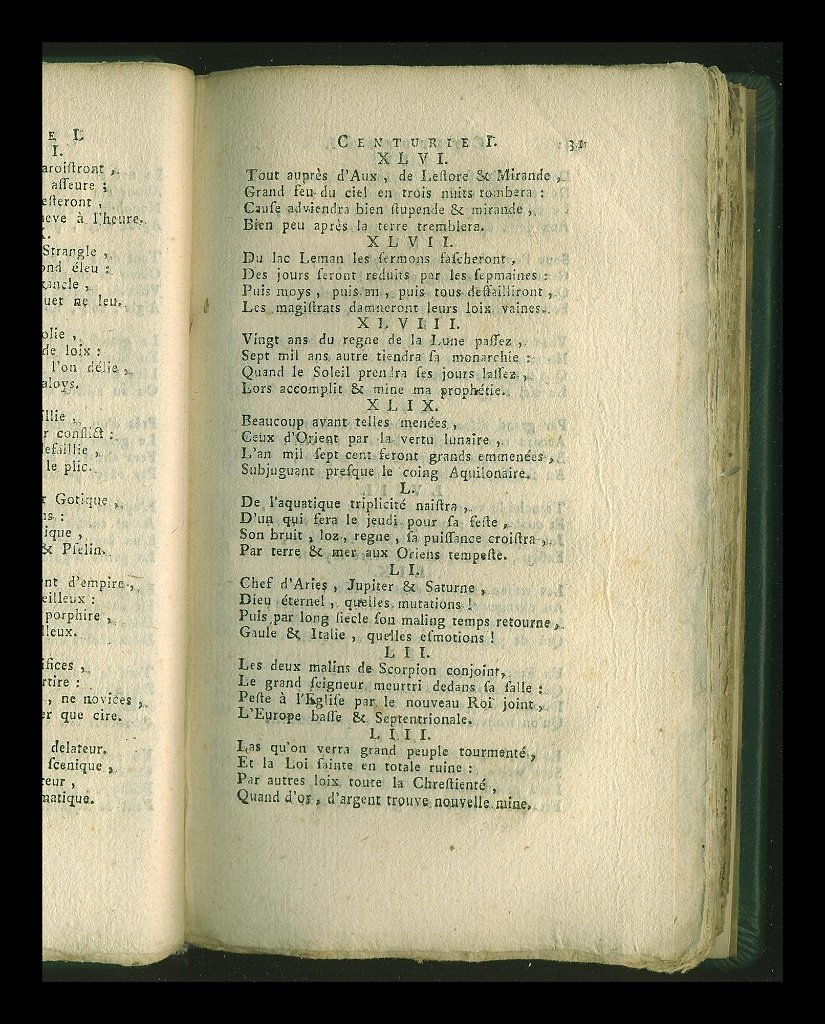 E I.
I.
aroiſtront,
aſſeure ;
eſteront,
eve à l'heure.
X.
Strangle,
ond éleu :
rancle,
uet ne leu.
olie,
de loix :
l'on délie,
aloys.
illie,
r conflict :
defaillie,
le plic.
r Gotique,
ns :
ique,
& Pſelin.
nt d'empire,
eilleux :
porphire,
lleux.
ifices,
rtire :
, ne novices,
er que cire.
delateur.
ſcenique,
teur,
matique.
CENTURIE I. 31
XLVI.
Tout auprès d'Aux, de Leſtore & Mirande,
Grand feu du ciel en trois nuits tombera :
Cauſe adviendra bien ſtupende & mirande,
Bien peu après la terre tremblera.
XLVII.
Du lac Leman les ſermons faſcheront,
Des jours ſeront reduits par les ſepmaines :
Puis moys, puis an, puis tous deffailliront,
Les magiſtrats damneront leurs loix vaines.
XLVIII.
Vingt ans du regne de la Lune paſſez,
Sept mil ans autre tiendra ſa monarchie :
Quand le Soleil prendra ſes jours laſſez,
Lors accomplit & mine ma prophétie.
XLIX.
Beaucoup avant telles menées,
Ceux d'Orient par la vertu lunaire,
L'an mil ſept cent ſeront grands emmenées,
Subjuguant preſque le coing Aquilonaire.
L.
De l'aquatique triplicité naiſtra,
D'un qui fera le jeudi pour ſa feſte,
Son bruit, loz, regne, ſa puiſſance croiſtra,
Par terre & mer aux Oriens tempeſte.
LI.
Chef d'Aries, Jupiter & Saturne,
Dieu éternel, quelles mutations !
Puis par long ſiecle ſon maling temps retourne,
Gaule & Italie, quelles eſmotions !
LII.
Les deux malins de Scorpion conjoint,
Le grand ſeigneur meurtri dedans ſa ſalle :
Peſte à l'Egliſe par le nouveau Roi joint,
L'Europe baſſe & Septentrionale.
LIII.
Las qu'on verra grand peuple tourmenté,
Et la Loi ſainte en totale ruine :
Par autres loix toute la Chreſtienté,
Quand d'or, d'argent trouve nouvelle mine.